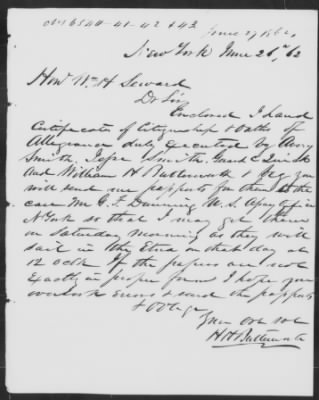 No 6540-41-42 & 43
June 27 1862
New York June 26th, 62
Hon Wm H Seward
Dr Sir
Enclosed I hand
Certificates of Citizenship & Oaths of
Allegiance duly executed by Avery
Smith. Jesse Smith.
and William H Butterworth & beg you
will send me passports for them to the
care Mr G. F. Dunning U.S. Assay office
N York so that I may get them
on Saturday Morning as they will
sail in the Etna on that day at
12 oclk If the papers are not
exactly in proper form I hope you
overlook errors & send the passports
& oblige
Your obt svt
H H Butterworth